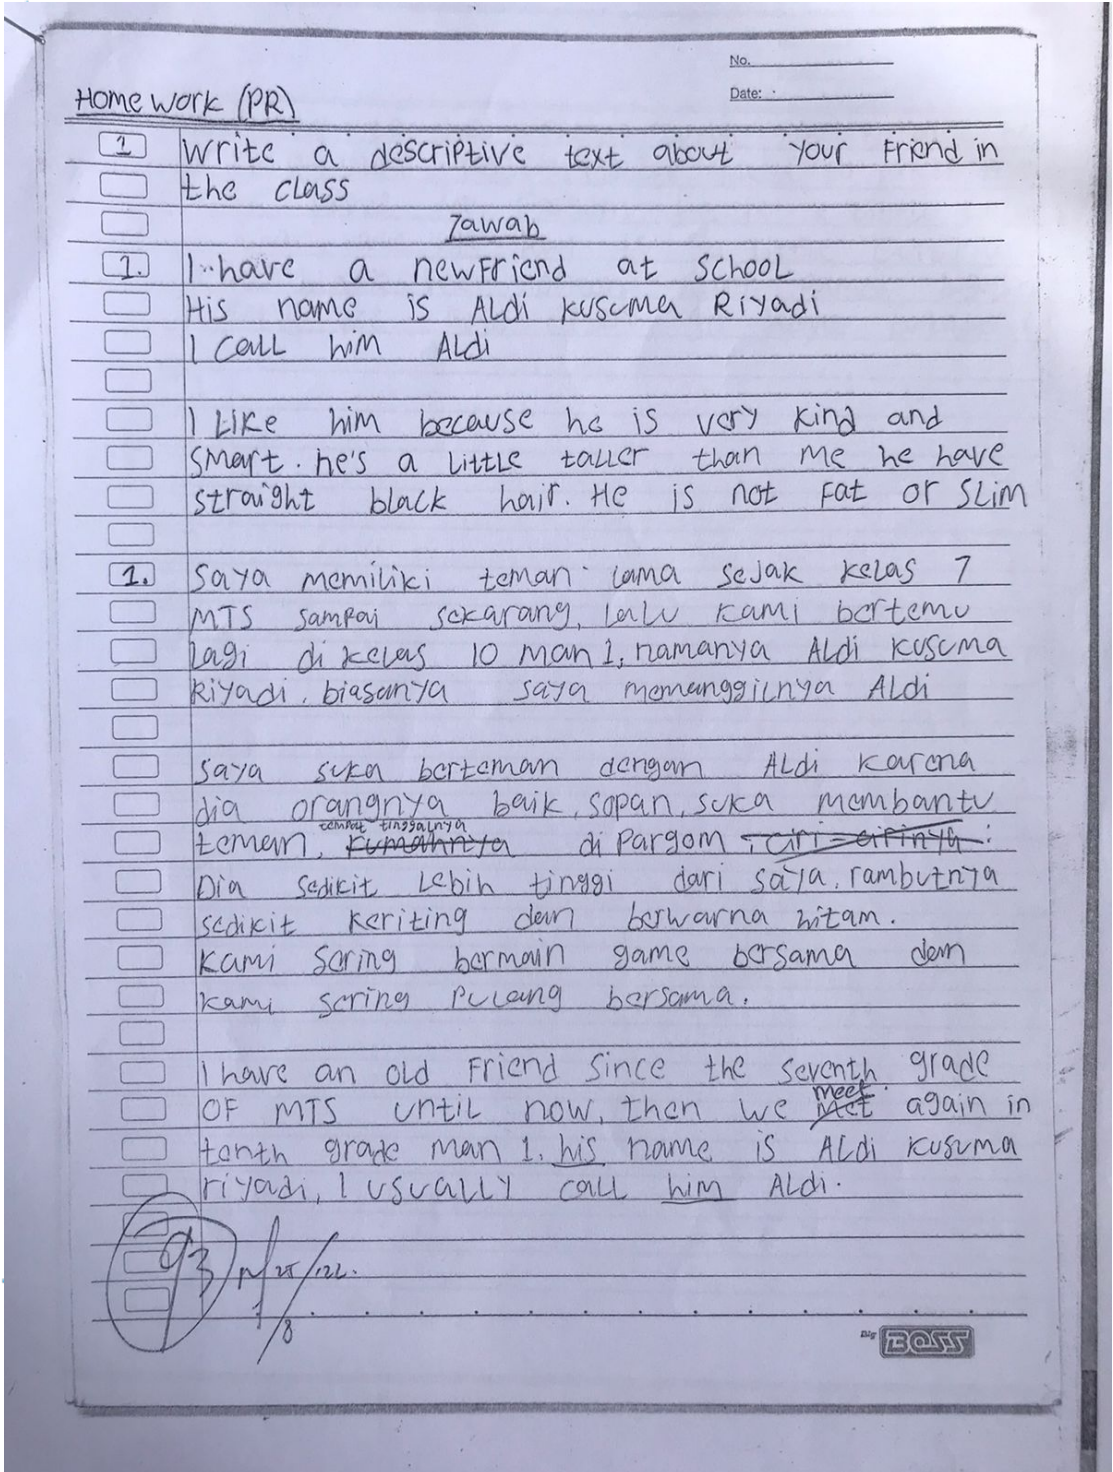 No.
Date:
Home work (PR)
1 Write a descriptive text about your Friend in
the class
Jawab
1. I have a new Friend at school
His name is Aldi kusuma Riyadi
I call him Aldi
I Like him because he is very kind and
smart. he's a little taller than me he have
straight black hair. He is not Fat or slim
1. Saya memiliki teman lama sejak kelas 7
MTS sampai sekarang, lalu kami bertemu
lagi di kelas 10 man 1, namanya Aldi kusuma
Riyadi, biasanya saya memanggilnya Aldi
Saya suka berteman dengan Aldi karena
dia orangnya baik, sopan, suka membantu
tempat tinggalnya
teman, rumahnya di Pargom, ciri-cirinya :
Dia sedikit lebih tinggi dari saya, rambutnya
sedikit keriting dan berwarna hitam.
Kami sering bermain game bersama dan
kami sering pulang bersama.
I have an old Friend since the seventh grade
meet
OF MTS until now, then we met again in
tenth grade man 1. his name is Aldi kusuma
riyadi, I usually call him Aldi.
93
8
Big BOSS